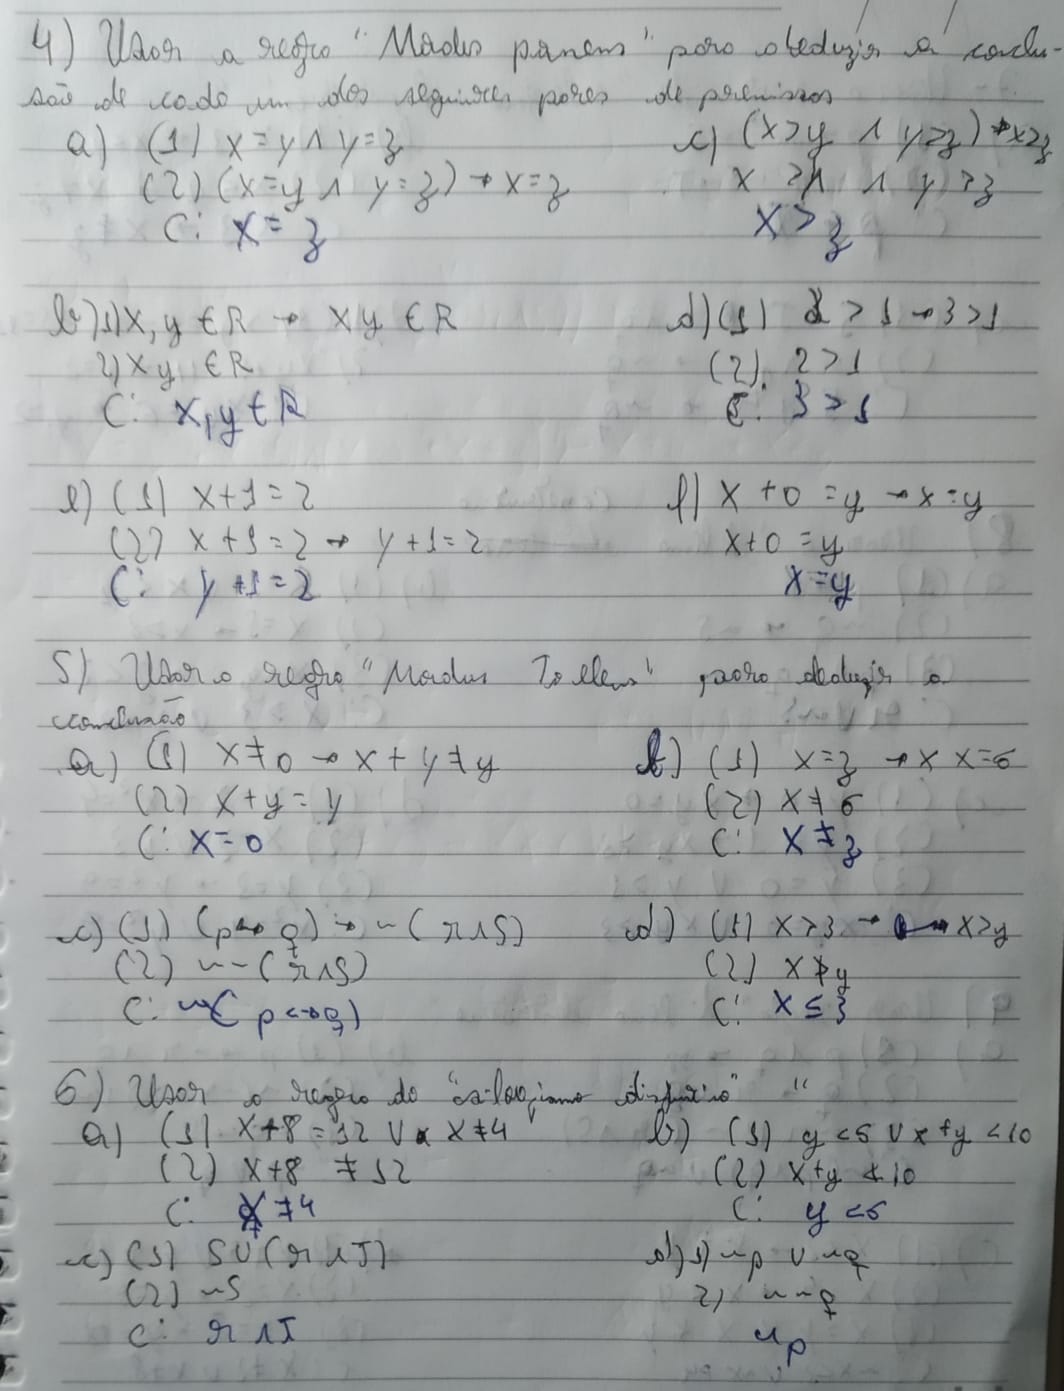 4) Usar a regra "Modus ponens" para deduzir a conclu-
são de cada um dos seguintes pares de premissas
a) (1) x = y ∧ y = z
(2) (x=y ∧ y=z) → x=z
C: x = z
c) (x>y ∧ y>z) → x>z
x > y ∧ y > z
x > z
b) 1) x, y ∈ R → xy ∈ R
2) xy ∈ R
C: x, y ∈ R
d) (1) 2 > 1 → 3 > 1
(2) 2 > 1
C: 3 > 1
e) (1) x+1=2
(2) x+1=2 → y+1=2
C: y+1=2
f) x+0=y → x=y
x+0=y
x=y
5) Usar a regra "Modus Tollens" para deduzir a
conclusão
a) (1) x≠0 → x+y≠y
(2) x+y=y
C: x=0
b) (1) x=z → x x=6
(2) x≠6
C: x≠z
c) (1) (p↔q) → ~(r∧s)
(2) ~~(r∧s)
C: ~(p↔q)
d) (1) x>3 → x>y
(2) x≯y
C: x≤3
6) Usar a regra do "silogismo disjuntivo" "
a) (1) x+8=12 ∨ x≠4
(2) x+8≠12
C: x≠4
b) (1) y<6 ∨ x+y<10
(2) x+y≮10
C: y<6
c) (1) s∨(r∧t)
(2) ~s
C: r∧t
d) 1) ~p ∨ ~q
2) ~~q
~p